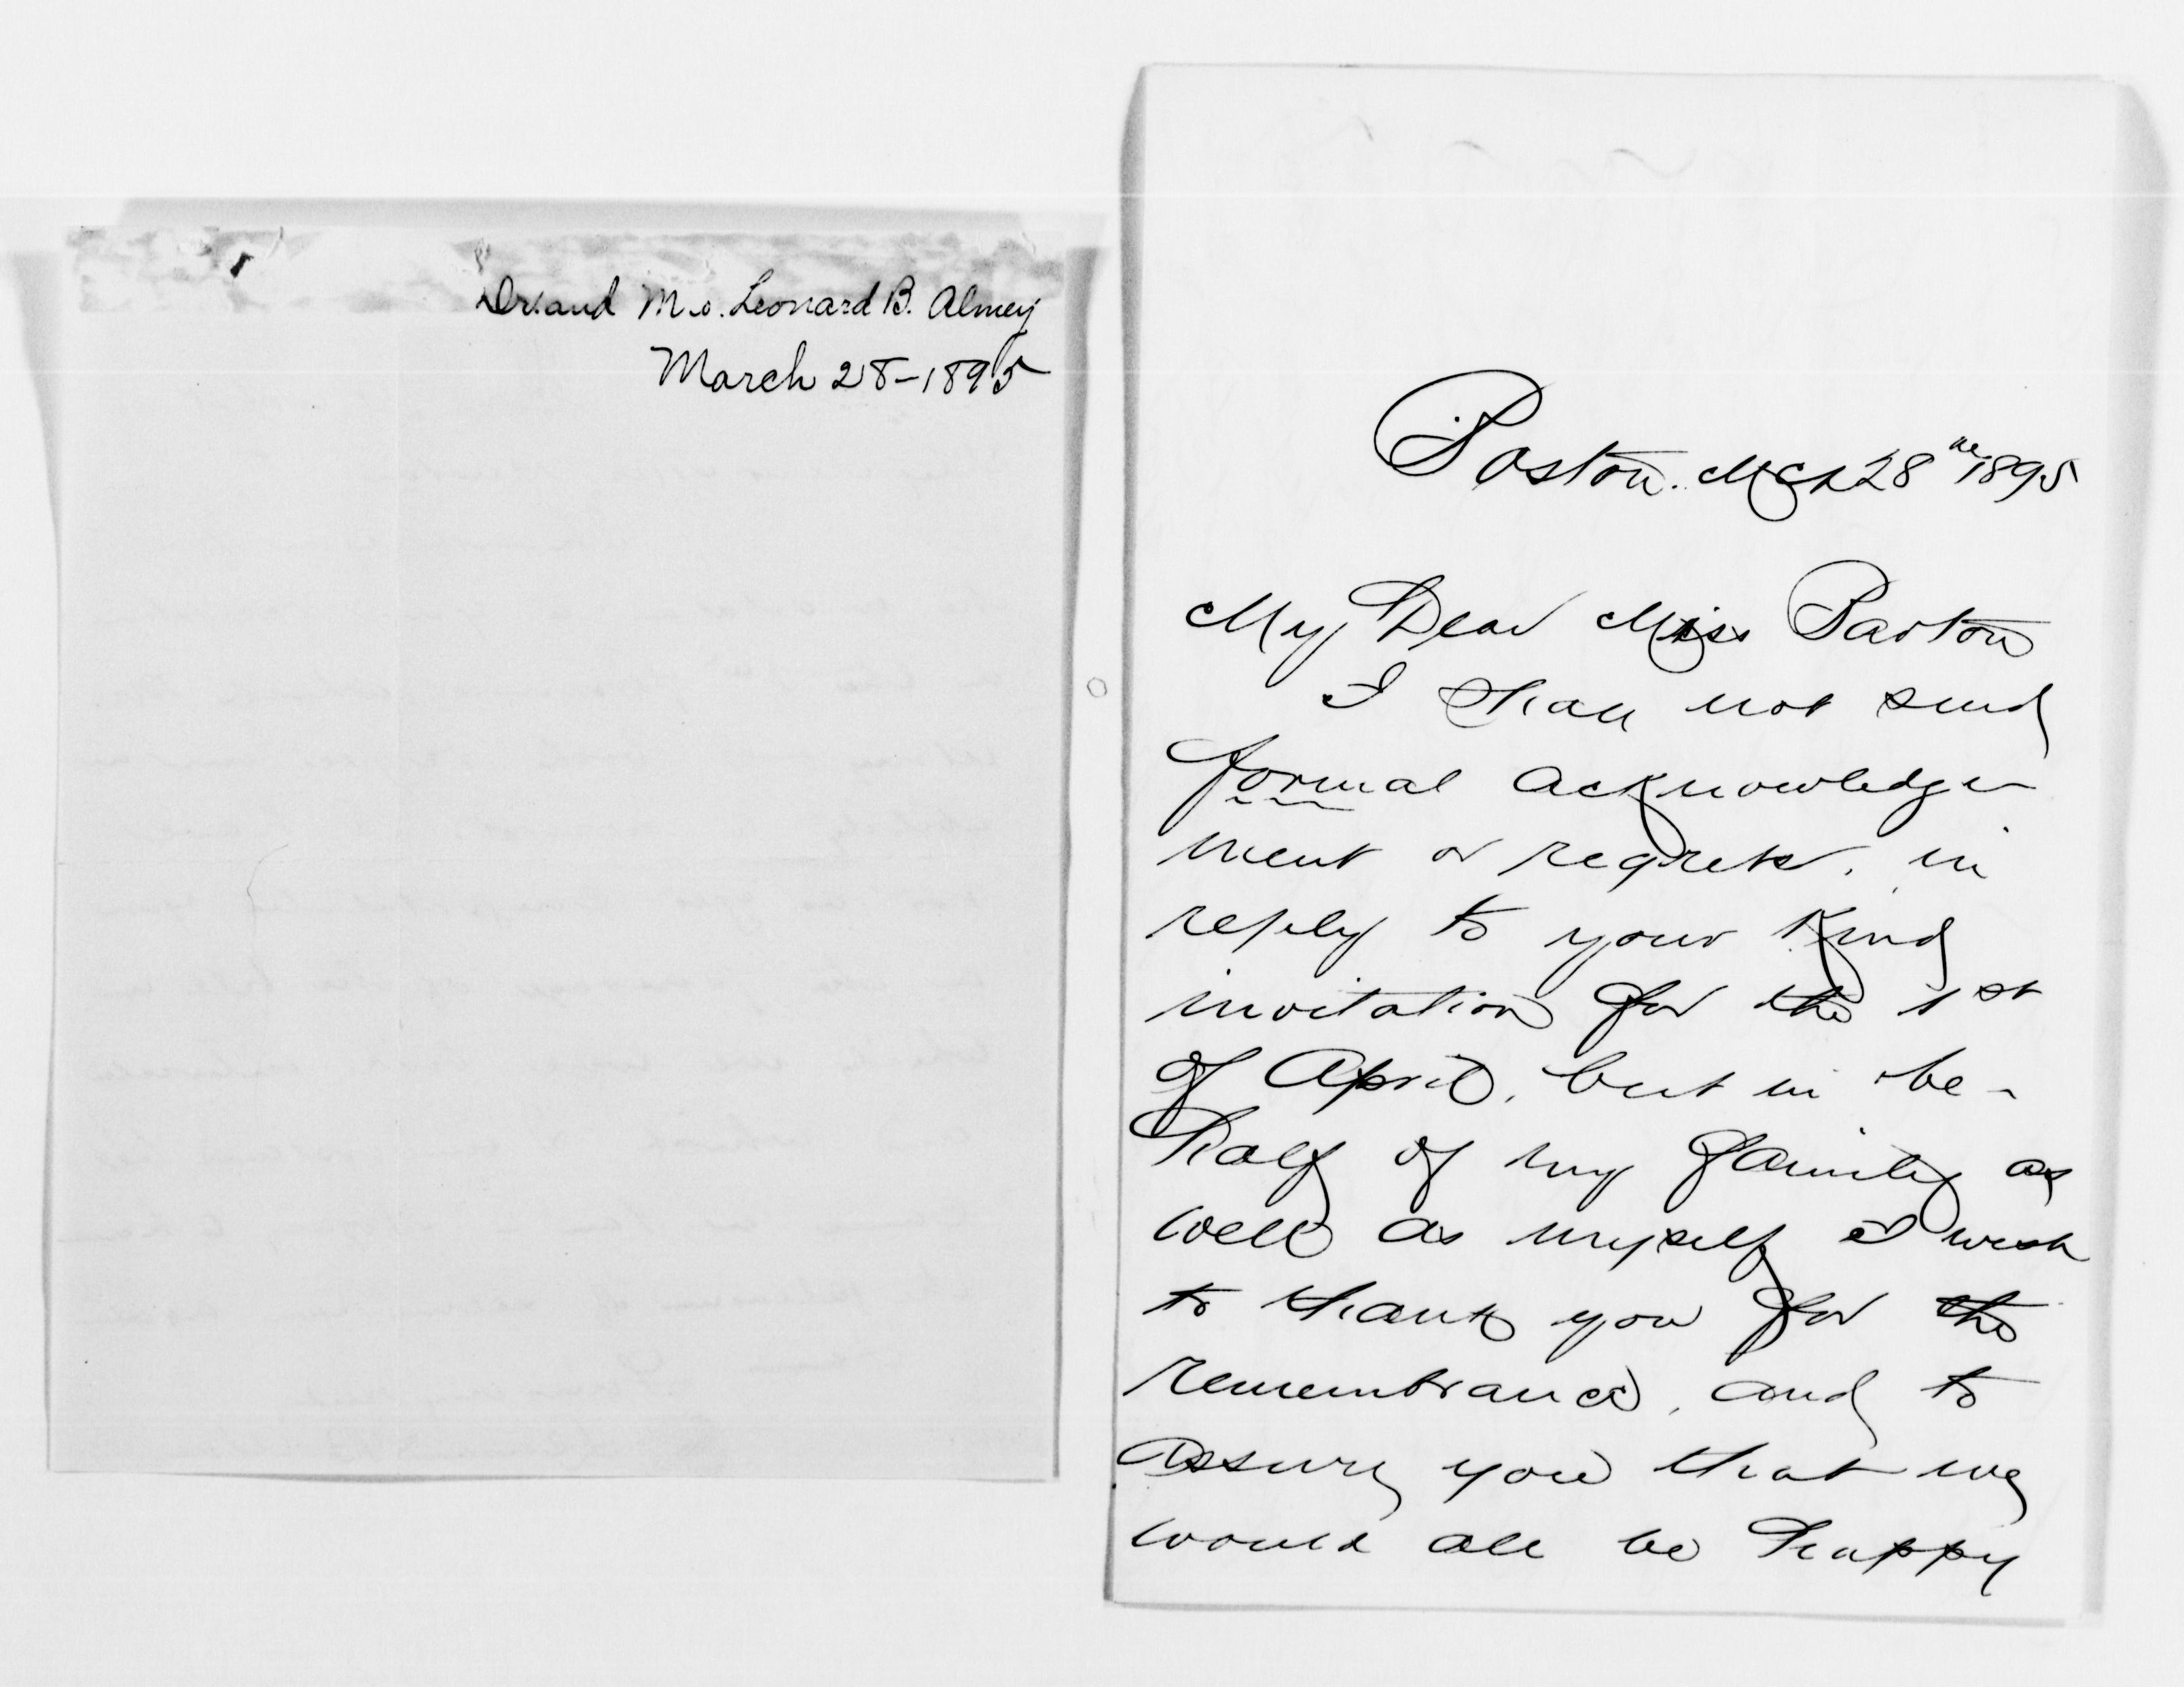 Dr. and Mrs. Leonard B. Almey
March 28-1895
Boston. Mch 28th 1895
My Dear Miss Barton
I shall not send
formal acknowledge-
ment or regrets, in
reply to your kind
invitation for the 1st
of April, but in be-
half of my family as
well as myself I wish
to thank you for the
remembrance, and to
assure you that we
would all be happy